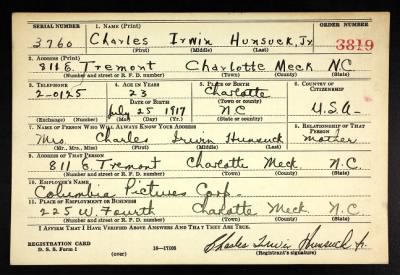 SERIAL NUMBER 1. NAME (Print) ORDER NUMBER
3760 Charles Irwin Hunsuck, Jr 3819
(First) (Middle) (Last)
2. ADDRESS (Print)
811 E. Tremont Charlotte Meck N.C.
(Number and street or R. F. D. number) (Town) (County) (State)
3. TELEPHONE 4. AGE IN YEARS 5. PLACE OF BIRTH 6. COUNTRY OF CITIZENSHIP
2-0125 23 Charlotte
DATE OF BIRTH (Town or county)
July 25 1917 N.C U.S.A.
(Exchange) (Number) (Mo.) (Day) (Yr.) (State or country)
7. NAME OF PERSON WHO WILL ALWAYS KNOW YOUR ADDRESS 8. RELATIONSHIP OF THAT PERSON
Mrs. Charles Irwin Hunsuck Mother
(Mr., Mrs., Miss) (First) (Middle) (Last)
9. ADDRESS OF THAT PERSON
811 E. Tremont Charlotte Meck. N.C.
(Number and street or R. F. D. number) (Town) (County) (State)
10. EMPLOYER'S NAME
Columbia Pictures Corp.
11. PLACE OF EMPLOYMENT OR BUSINESS
225 W. Fourth Charlotte Meck. N.C.
(Number and street or R. F. D. number) (Town) (County) (State)
I AFFIRM THAT I HAVE VERIFIED ABOVE ANSWERS AND THAT THEY ARE TRUE.
REGISTRATION CARD
D. S. S. Form 1 (over) 16—17105 Charles Irwin Hunsuck Jr.
(Registrant's signature)